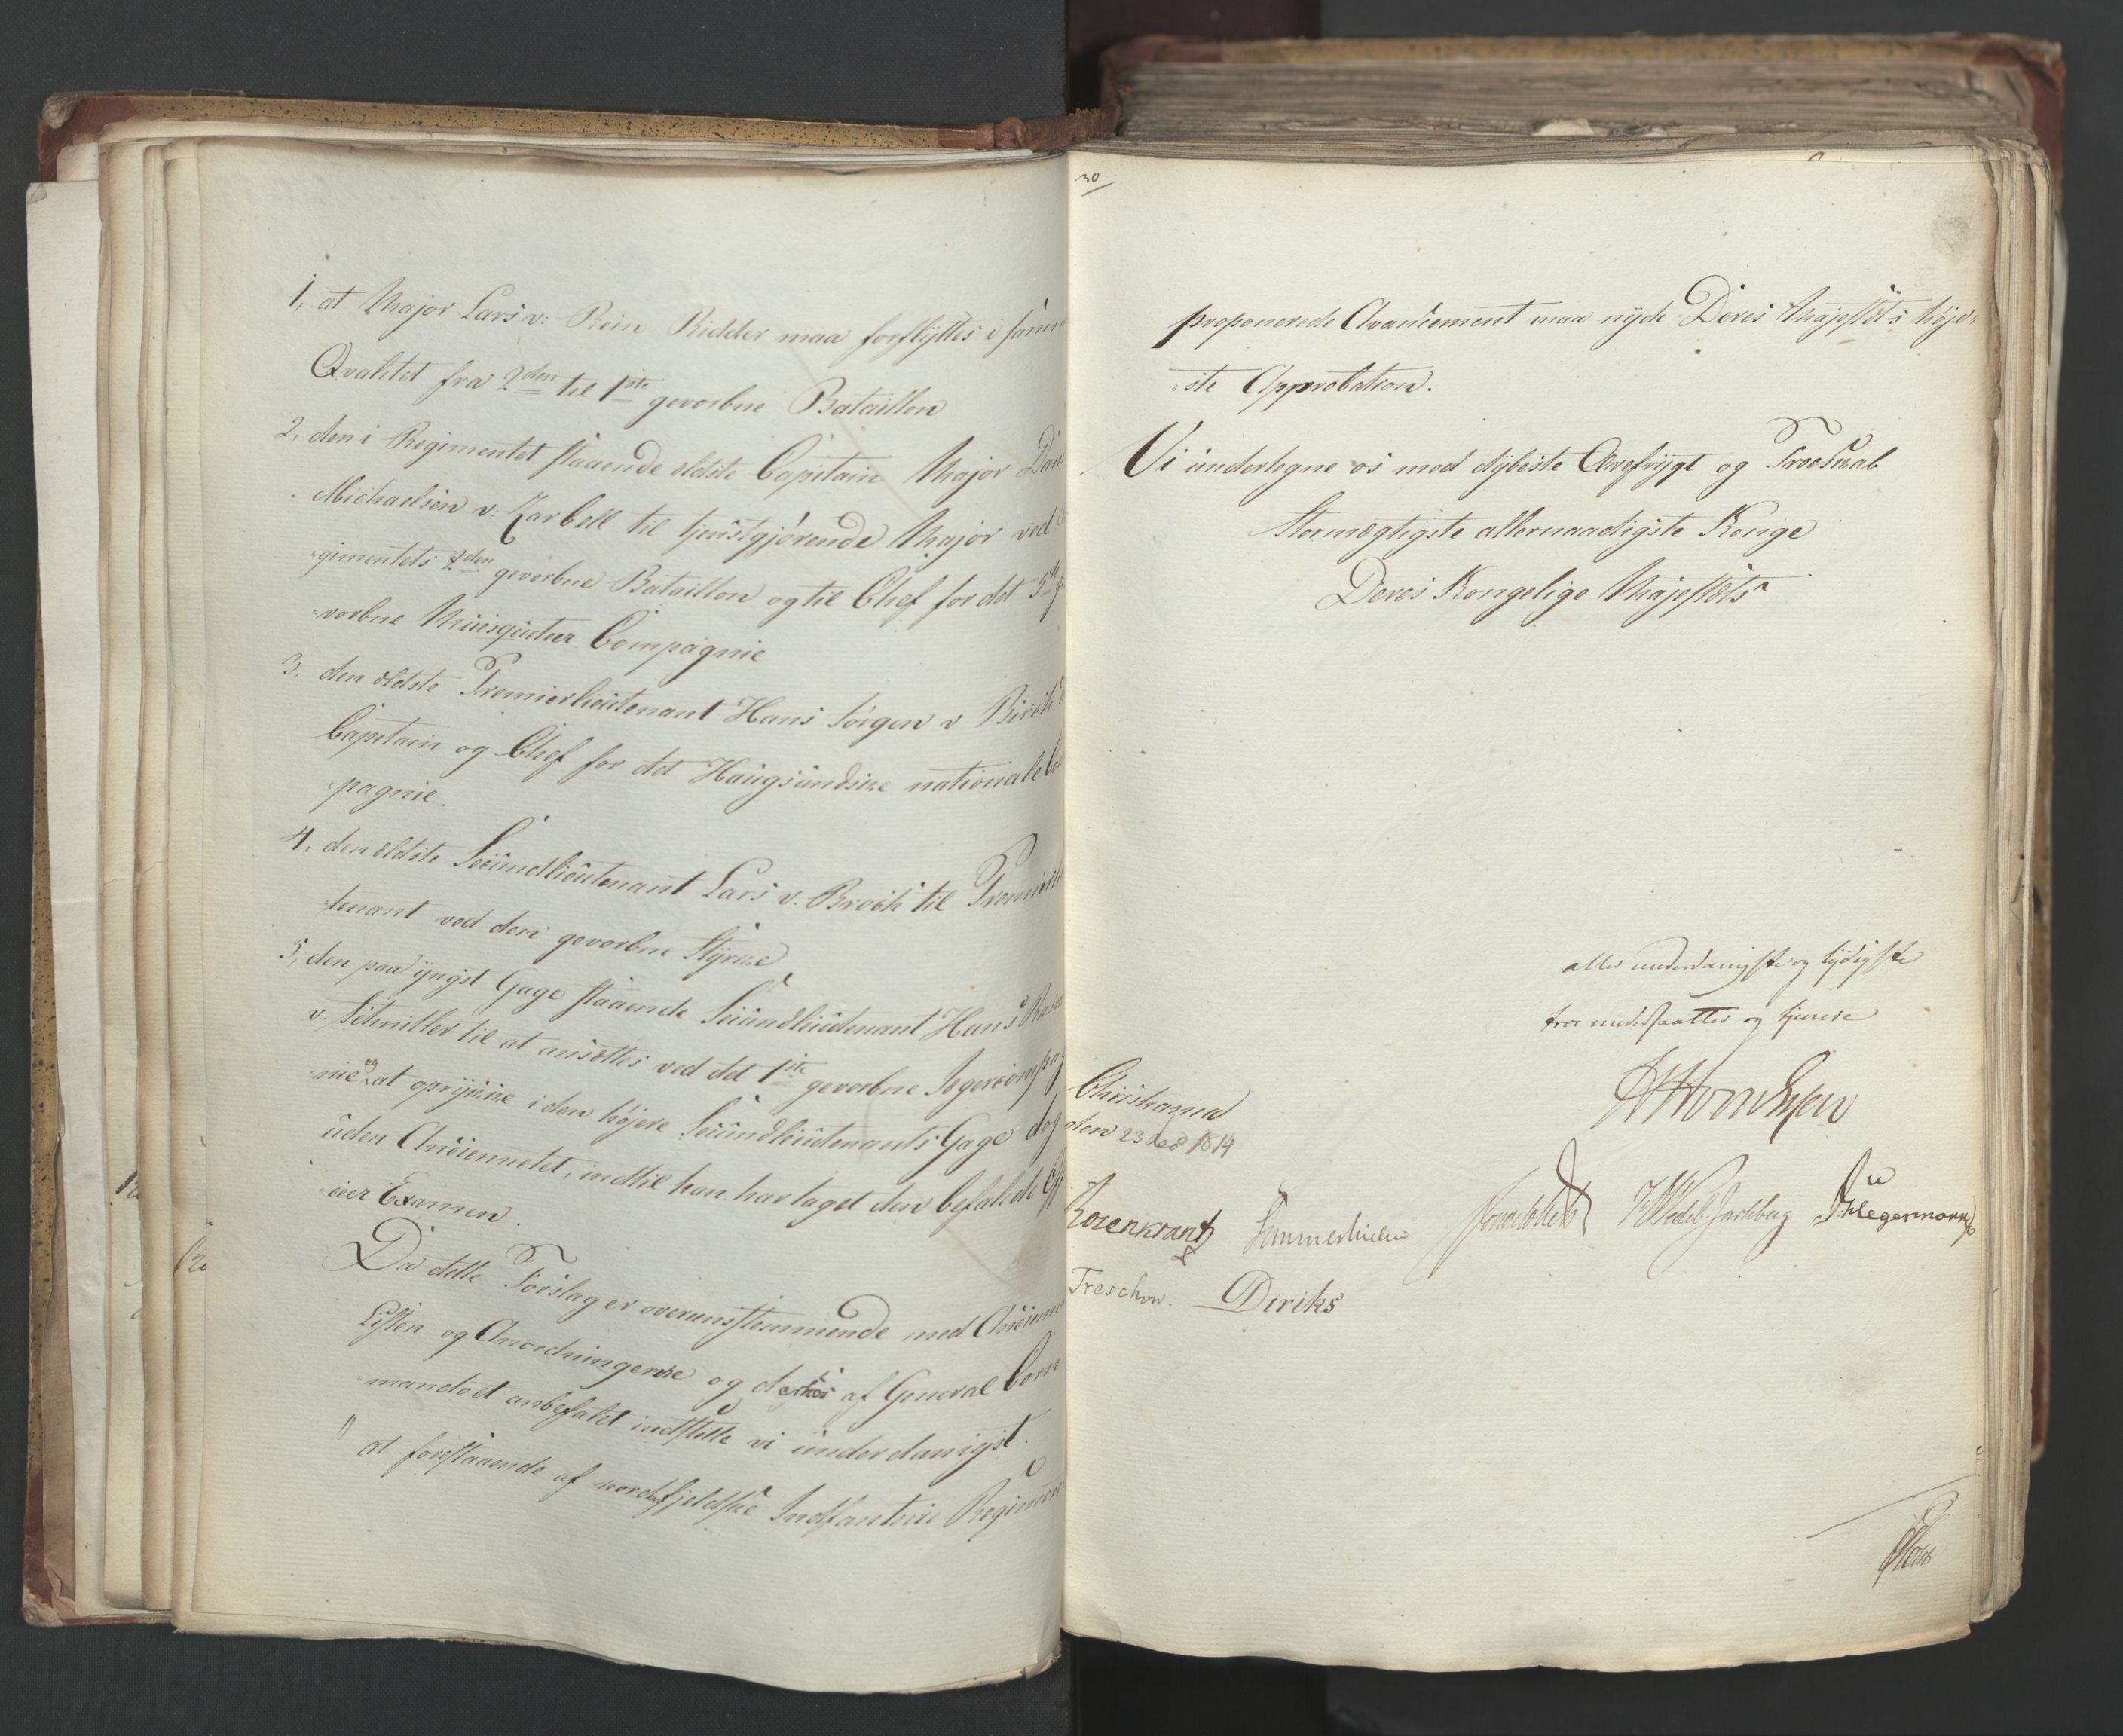 1, at Major Lars v: Rein Ridder maa forflyttes i samm
Qvalitet fra 2den til 1ste gevorbne Bataillon
2, den i Regimentet staaende ældste Capitain Major Dan
Michaelsen v. Zarbell til tjenstgjørende Major ved
gimentets 2den gevorbne Bataillon og til Chef for det 5te g
vorbne Musqueteer Compagnie
3, den ældste Premierlieutenant Hans Jørgen v Birch
Capitain og Chef for det Haugsundske nationale Co
pagnie.
4, den ældste Secundlieutenant Lars v. Broch til Premierli
tenant ved den gevorbne Styrke
5, den paa yngst Gage staaende Secundlieutenant Hans Ras
v. Schnitler til at ansættes ved det 1ste gevorbne Jegercompag
nie og at oprykke i den højere Secundlieutenants Gage dog
uden Anciennetet, indtil han har taget den befalede Off
iceer Examen.
Da dette Forslag er overensstemmende med Ancienne
Listen og Anordningerne og af General Com
mandoet anbefalet indstille vi underdanigst.
at forestaaende af nordenfjeldske Indfanterie Regimen
30
proponerede Avancement maa nyde Deres Majestets høje
ste Approbation.
Vi undertegne os med dybeste Ærefrygt og Troeskab
Stormægtigste allernaadigste Konge
Deres Kongelige Majestæts
aller underdanigste og lydigste
troe undersaatter og tjenere
Christiania
den 23 Dec 1814
Rosenkrantz Sommerhielm Wedel Jarlsberg Hegermann
Treschow. Diriks